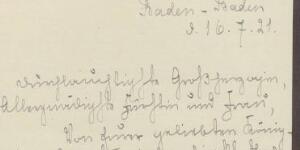 Baden-Baden
d. 16.7.21.
Durchlauchtigste Großherzogin,
Allergnädigste Fürstin und Frau,
Von Eurer geliebten König-